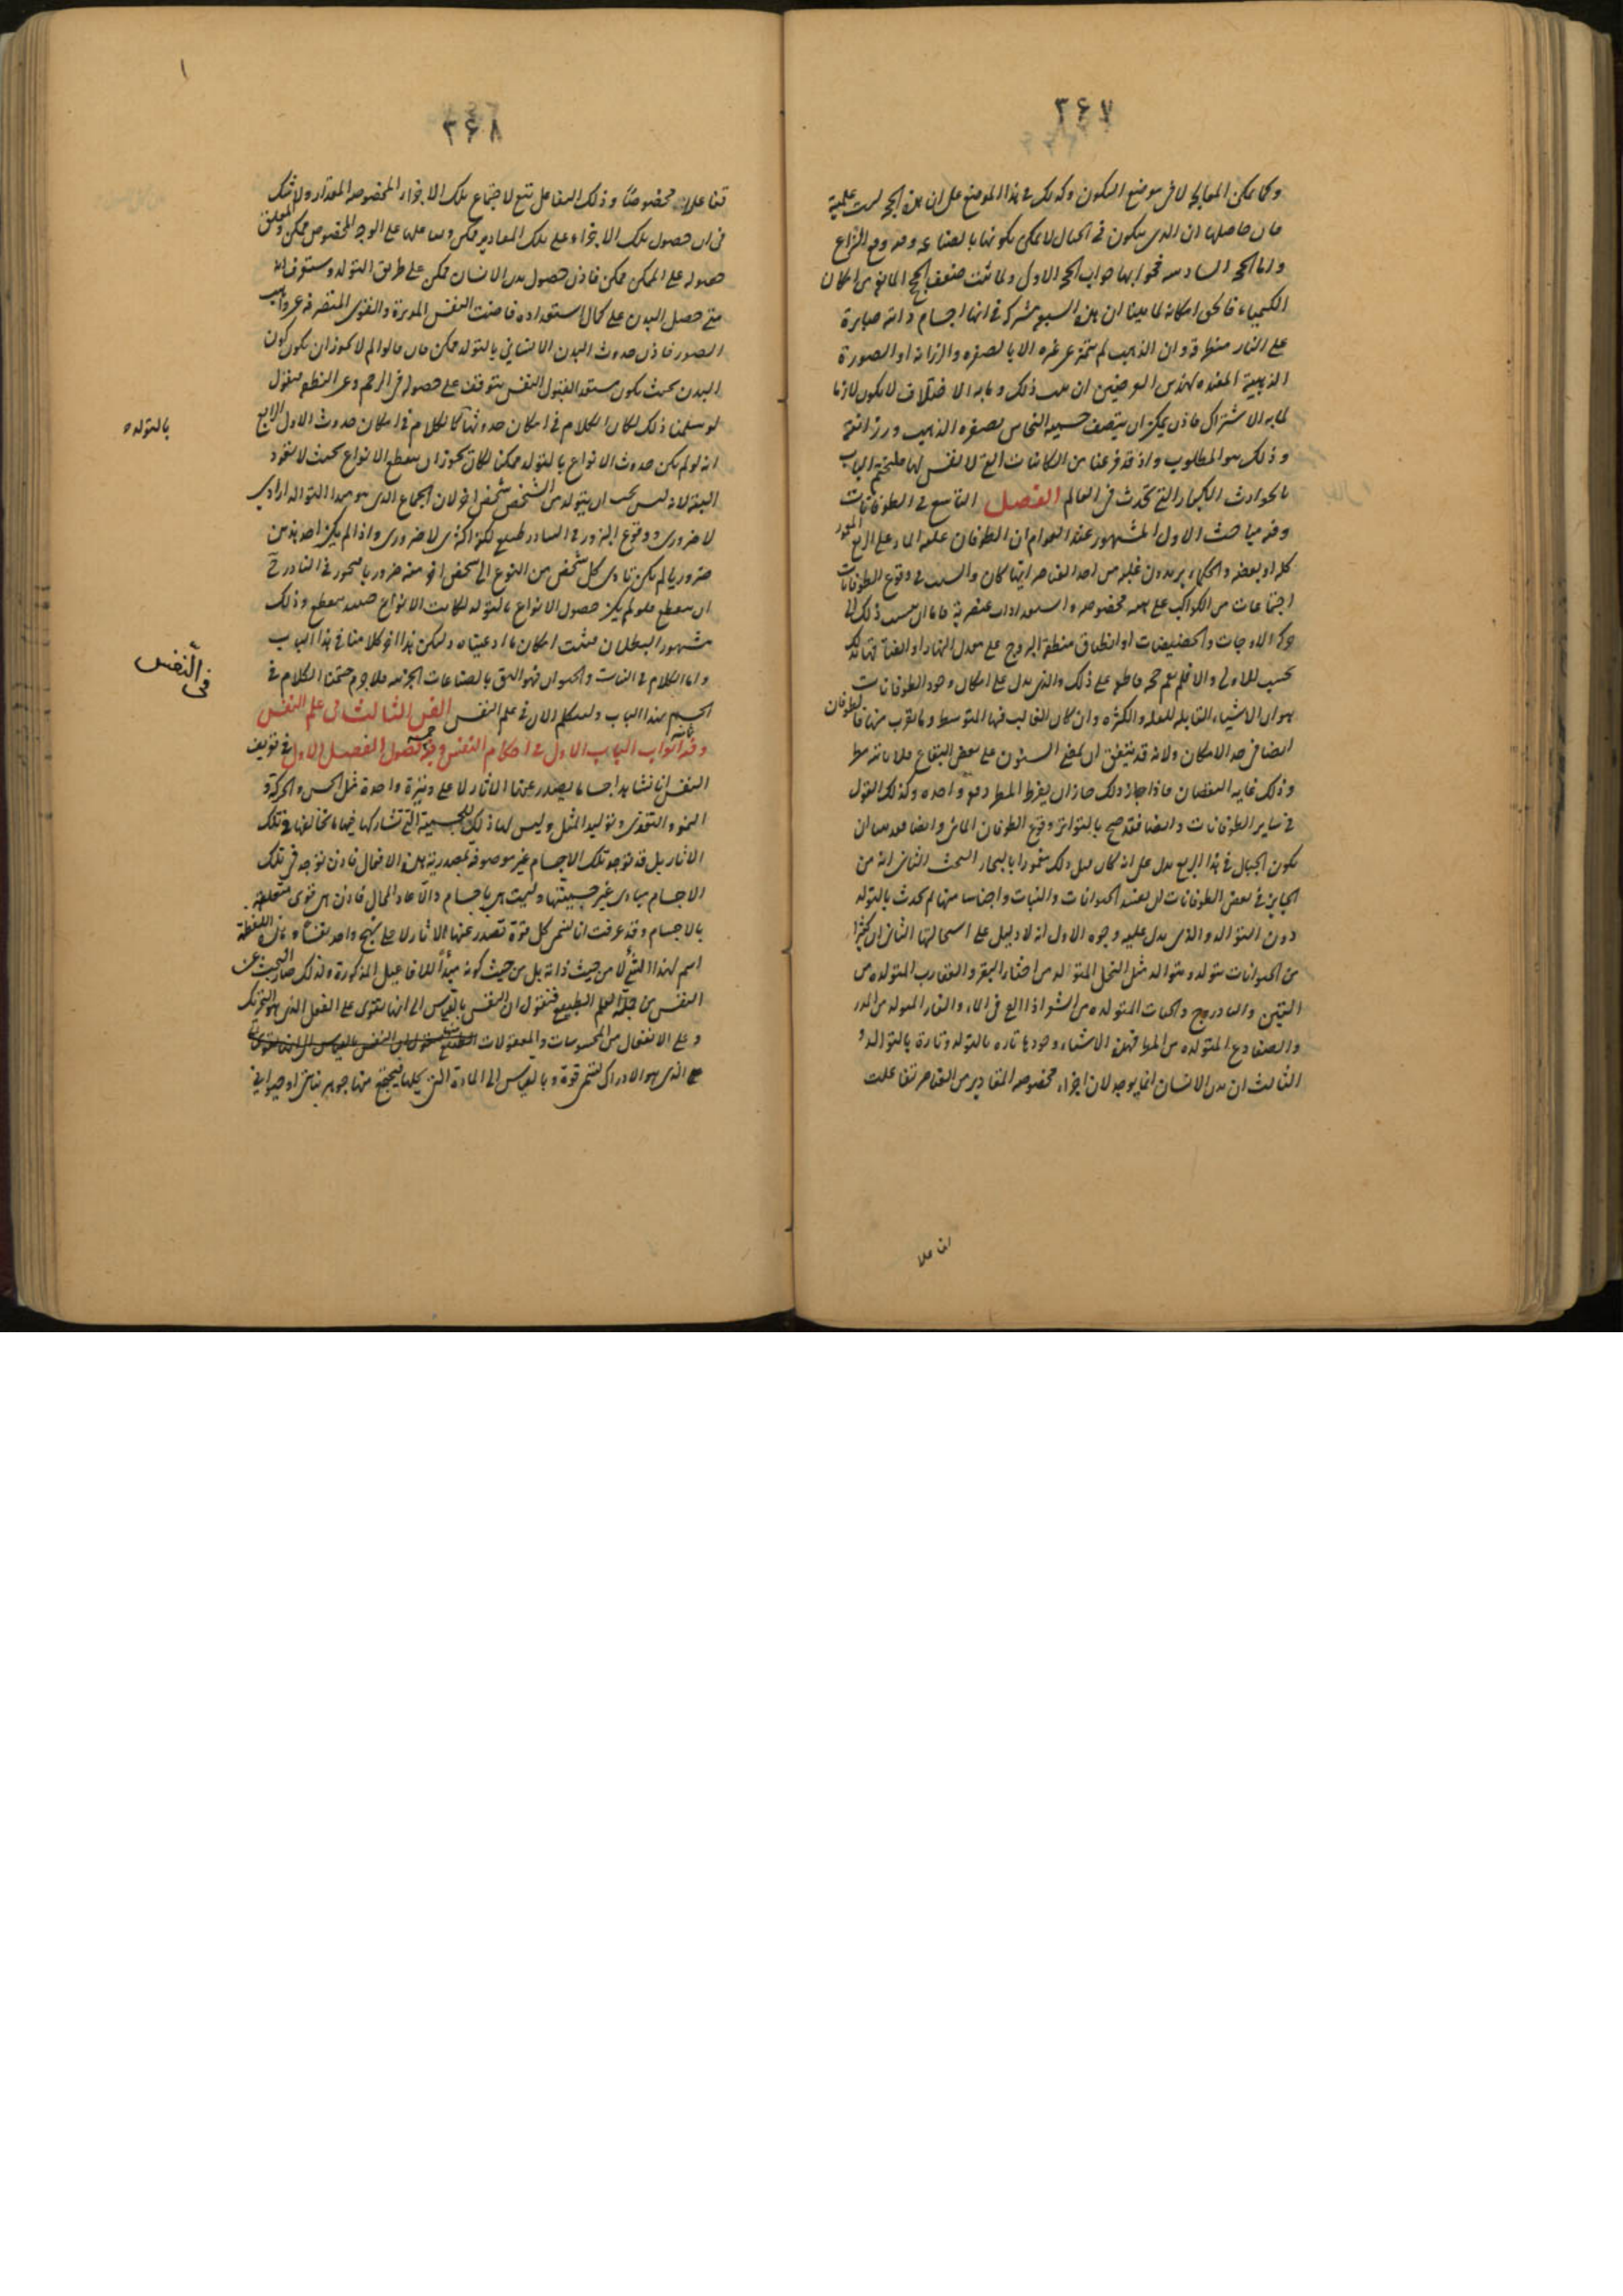 ٣٤٧
وكما يمكن المعالجة لا في موضع التكون وكذلك في هذا الموضع على ان هذه الحجة ليست علمية
فان حاصلها ان الذي يتكون في الجبال لا يمكن تكونها بالصناعة وفيه وقع النزاع
واما الحجة السادسة فجوابها جواب الحجة الاولى ولما ثبت ضعف الحجج المانعة من امكان
الكيمياء فالحق امكانه لما بينا ان هذه السبعة مشتركة في انها اجسام ذائبة صابرة
على النار منطرقة وان الذهب لم يتميز عن غيره الا بالصفرة والرزانة او الصورة
الذهبية المفيدة لهذين العرضين ان ثبت ذلك وما به الاختلاف لا يكون لازما
لما به الاشتراك فاذن يمكن ان يتصف جسمية النحاس بصفرة الذهب ورزانته
وذلك هو المطلوب واذ قد فرغنا من الكائنات التي لا نفس لها فلنختم الباب
بالحوادث الكبار التي تحدث في العالم الفصل التاسع في الطوفانات
وفيه مباحث الاول المشهور عند العوام ان الطوفان غلبة الماء على الربع المعمور
كله او بعضه والحكماء يريدون غلبة من احد العناصر ايها كان والسبب في وقوع الطوفانات
اجتماعات من الكواكب على هيئة مخصوصة واستعدادات عنصرية فاما ان ينسب ذلك الى
حركة الاوجات والحضيضات او انطباق منطقة البروج على معدل النهار او الضأ فهاتلك
بحسب الاولى والا فلم نعم حجة قاطعة على ذلك والذي يدل على امكان وجود الطوفانات
هو ان الاشياء القابلة للقلة والكثرة وان كان الغالب فيها المتوسط وما يقرب منها فالطوفان
ايضا في حد الامكان ولانه قد يتفق ان تمضي السنون على بعض البقاع فلا يأتيه مطر
وذلك غاية النقصان فاذا جاز ذلك جاز ان يفرط المطر دفعة واحدة وكذلك القول
في ساير الطوفانات وايضا فقد صح بالتواتر وقوع الطوفان المائي وايضا فقد بينا ان
تكون الجبال في هذا الربع يدل على انه كان قبل ذلك مغمورا بالبحار البحث الثاني انه من
الجايز في بعض الطوفانات ان يفسد الحيوانات والنبات واجناسا منها ثم تحدث بالتولد
دون التوالد والذي يدل عليه وجوه الاول انه لا دليل على استحالتها الثاني ان كثيرا
من الحيوانات يتولد ويتوالد مثل النحل المتولد من اخثاء البقر والعقارب المتولدة من
التبن والبادروج والحيات المتولدة من الشعر اذا القي في الماء والفار المتولد من المدر
والضفادع المتولدة من المطر فهذه الاشياء وجودها تارة بالتولد وتارة بالتوالد و
الثالث ان بدن الانسان انما يوجد لان اجزاء مخصوصة المقادير من العناصر تفاعلت
تفاعلا
٣٤٨
تفاعلا مخصوصا وذلك التفاعل تبع لاجتماع تلك الاجزاء المخصوصة المقدار ولا شك
في ان حصول تلك الاجزاء على تلك المقادير ممكن وتفاعلها على الوجه المخصوص ممكن والمعلق
حصوله على الممكن ممكن فاذن حصول بدن الانسان ممكن على طريق التولد وستعرف انه
متى حصل البدن على كمال استعداده فاضت النفس المدبرة والقوى المتصرفة عن واهب
الصور فاذن حدوث البدن الانساني بالتولد ممكن فان قالوا لم لا يجوز ان يكون كون
البدن بحيث يكون مستعد القبول النفس يتوقف على حصوله في الرحم وعن النطفة فنقول
لو سلمنا ذلك لكان الكلام في امكان حدوثها كالكلام في امكان حدوث الاول الرابع
انه لو لم يكن حدوث الانواع بالتولد ممكنا لكان يجوز ان ينقطع الانواع بحيث لا تعود
البتة لانه ليس يجب ان يتولد من الشخص شخص اخر لان الجماع الذي هو مبدا التوالد ارادي
لا ضروري ووقوع البزور في المبادر طبيعي لكنه اكثري لا ضروري واذا لم يكن احد هذين
ضروريا لم يكن تادي كل شخص من النوع الى شخص اخر منه ضروريا فيجوز في النادر ح
ان ينقطع فلو لم يكن حصول الانواع بالتولد لكانت الانواع حينئذ ينقطع وذلك
مشهور البطلان فثبت امكان ما ادعيناه وليكن هذا اخر كلامنا في هذا الباب
واما الكلام في النبات والحيوان فهو اليق بالصناعات الجزئية فلا جرم ختمنا الكلام في
الجسم بهذا الباب ولنتكلم الان في علم النفس الفن الثالث في علم النفس
وفيه ابواب الباب الاول في احكام النفس وفيه فصول الفصل الاول في تعريف
النفس انا نشاهد اجساما يصدر عنها الاثار لا على وتيرة واحدة مثل الحس والحركة و
النمو والتغذي وتوليد المثل وليس لها ذلك للجسمية التي تشاركها فيها ما تخالفها في تلك
الاثار بل قد توجد تلك الاجسام غير موصوفة بمصدرية هذه الافعال فاذن توجد في تلك
الاجسام مبادي غير جسميتها وليست هي باجسام والا عاد المحال فاذن هي قوى متعلقة
بالاجسام وقد عرفت انا نسمي كل قوة تصدر عنها الاثار لا على نهج واحد نفسا وهذه اللفظة
اسم لهذا الشيء لا من حيث ذاته بل من حيث كونه مبدأ للافاعيل المذكورة ولذلك صار البحث عن
النفس من جملة العلم الطبيعي فنقول ان النفس بالقياس الى انها تقوى على الفعل الذي هو التحريك
وعلى الانفعال من المحسوسات والمعقولات
الذي هو الادراك تسمى قوة وبالقياس الى المادة التي تحلها فيجتمع منها جوهر نباتي او حيواني
بالتولد
في النفس